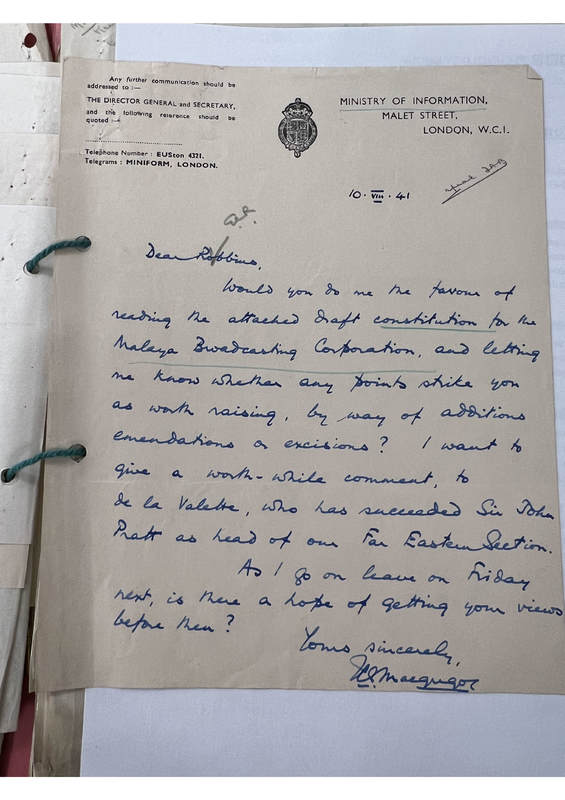 Any further communication should be
addressed to :—
THE DIRECTOR GENERAL and SECRETARY,
and the following reference should be
quoted :—
Telephone Number : EUSton 4321.
Telegrams : MINIFORM, LONDON.
MINISTRY OF INFORMATION,
MALET STREET,
LONDON, W.C.1.
10 · VIII · 41
Dear Robbins,
Would you do me the favour of
reading the attached draft constitution for the
Malaya Broadcasting Corporation, and letting
me know whether any points strike you
as worth raising, by way of additions
emendations or excisions? I want to
give a worth-while comment, to
de la Valette, who has succeeded Sir John
Pratt as head of our Far Eastern Section.
As I go on leave on Friday
next, is there a hope of getting your views
before then?
Yours sincerely,
Macgregor